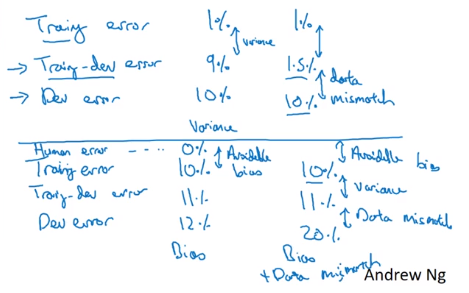 Training error 1% 1%
↕ variance
→ Training-dev error 9% 1.5%
↕ data mismatch
→ Dev error 10% 10%
Variance
Human error ---- 0%
↕ Avoidable bias ↕ Avoidable bias
Training error 10% 10%
↕ Variance
Training-dev error 11% 11%
↕ Data mismatch
Dev error 12% 20%
Bias Bias
+ Data mismatch
Andrew Ng